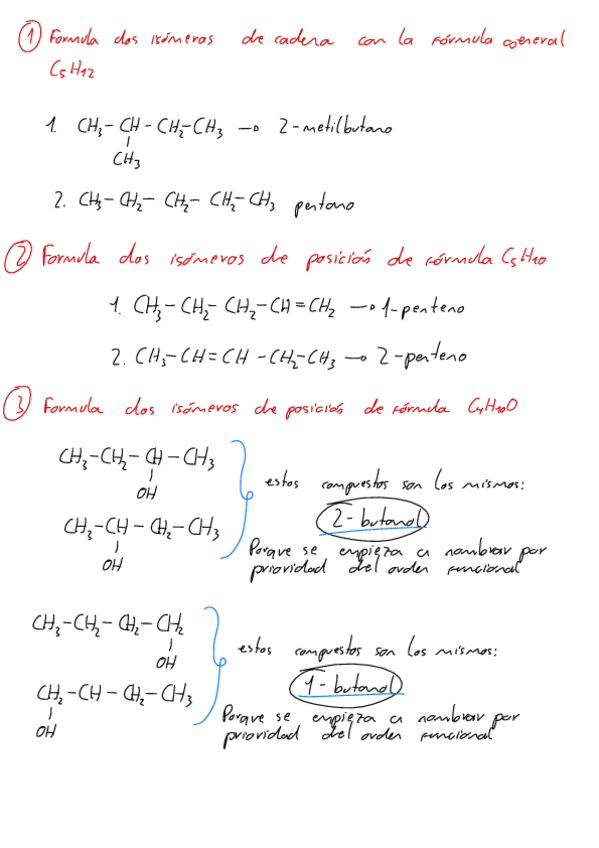 ① Formula dos isómeros de cadena con la fórmula general
C5H12
1. CH3-CH-CH2-CH3 → 2-metilbutano
|
CH3
2. CH3-CH2-CH2-CH2-CH3 pentano
② Formula dos isómeros de posición de fórmula C5H10
1. CH3-CH2-CH2-CH=CH2 → 1-penteno
2. CH3-CH=CH-CH2-CH3 → 2-penteno
③ Formula dos isómeros de posición de fórmula C4H10O
CH3-CH2-CH-CH3
|
OH
estos compuestos son los mismos:
2-butanol
CH3-CH-CH2-CH3
|
OH
Porque se empieza a nombrar por
prioridad del orden funcional
CH3-CH2-CH2-CH2
|
OH
estos compuestos son los mismos:
1-butanol
CH2-CH-CH2-CH3
|
OH
Porque se empieza a nombrar por
prioridad del orden funcional